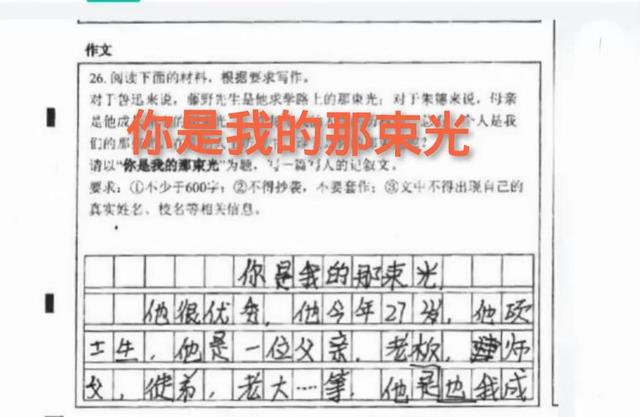 作文
26. 阅读下面的材料，根据要求写作。
对于鲁迅来说，藤野先生是他求学路上的那束光；对于朱德来说，母亲
是他成
个人是我
们的那
你是我的那束光
请以“你是我的那束光”为题，写一篇写人的记叙文。
要求：①不少于600字；②不得抄袭，不要套作；③文中不得出现自己的
真实姓名、校名等相关信息。
你是我的那束光
他很优秀，他今年27岁，他硕
士生，他是一位父亲，老板，师
父，徒弟，老大……等，他是也我成